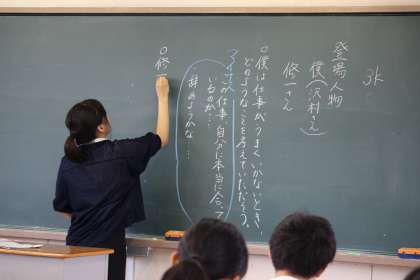 3k
登場人物
僕(沢村さん)
修一さん
○僕は仕事がうまくいかないとき、
どのようなことを考えていただろう。
マイナス
この仕事、自分に本当に合って
いるのか…
辞めようかな…
○修一